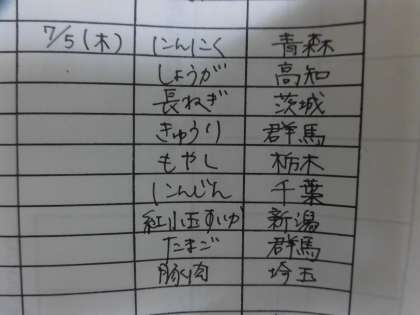 7/5(木) にんにく 青森
しょうが 高知
長ねぎ 茨城
きゅうり 群馬
もやし 栃木
にんじん 千葉
紅小玉すいか 新潟
たまご 群馬
豚肉 埼玉